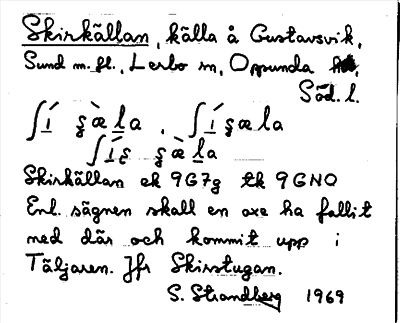 Skirkällan, källa å Gustavsvik,
Sund m. fl., Lerbo sn, Oppunda
Söd. l.
Skirkällan ek 9G7g tk 9GNO
Enl. sägnen skall en oxe ha fallit
ned där och kommit upp i
Täljaren. Jfr Skirstugan.
S. Strandberg 1969